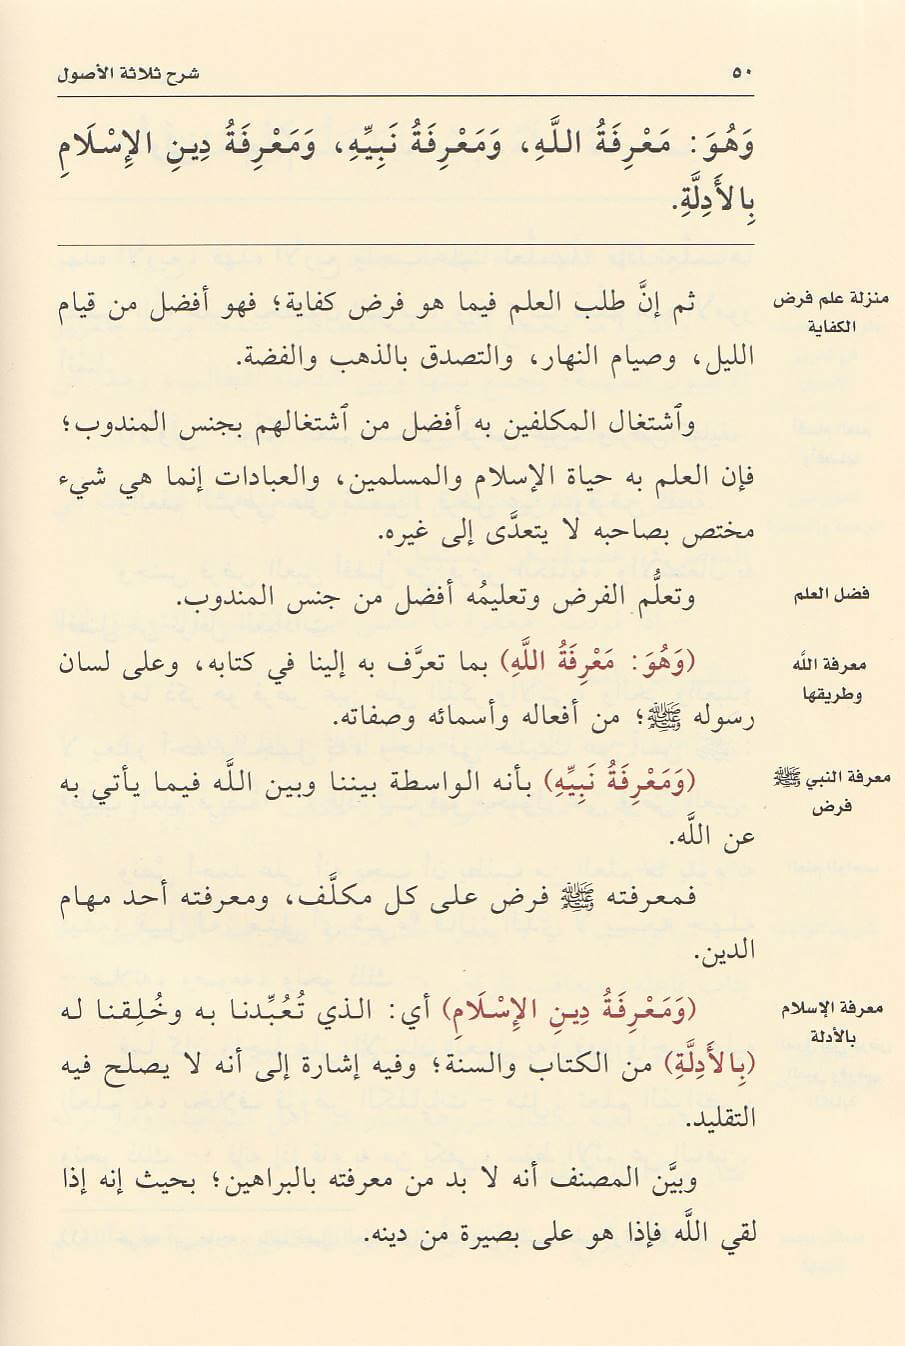 ٥٠
شرح ثلاثة الأصول
وَهُوَ: مَعْرِفَةُ اللَّهِ، وَمَعْرِفَةُ نَبِيِّهِ، وَمَعْرِفَةُ دِينِ الإِسْلَامِ
بِالأَدِلَّةِ.
منزلة علم فرض
الكفاية
ثم إنَّ طلب العلم فيما هو فرض كفاية؛ فهو أفضل من قيام
الليل، وصيام النهار، والتصدق بالذهب والفضة.
وٱشتغال المكلفين به أفضل من ٱشتغالهم بجنس المندوب؛
فإن العلم به حياة الإسلام والمسلمين، والعبادات إنما هي شيء
مختص بصاحبه لا يتعدَّى إلى غيره.
فضل العلم
وتعلُّم الفرض وتعليمُه أفضل من جنس المندوب.
معرفة اللَّه
وطريقها
(وَهُوَ: مَعْرِفَةُ اللَّهِ) بما تعرَّف به إلينا في كتابه، وعلى لسان
رسوله ﷺ؛ من أفعاله وأسمائه وصفاته.
معرفة النبي ﷺ
فرض
(وَمَعْرِفَةُ نَبِيِّهِ) بأنه الواسطة بيننا وبين اللَّه فيما يأتي به
عن اللَّه.
فمعرفته ﷺ فرض على كل مكلَّف، ومعرفته أحد مهام
الدين.
معرفة الإسلام
بالأدلة
(وَمَعْرِفَةُ دِينِ الإِسْلَامِ) أي: الذي تُعُبِّدنا به وخُلِقنا له
(بِالأَدِلَّةِ) من الكتاب والسنة؛ وفيه إشارة إلى أنه لا يصلح فيه
التقليد.
وبيَّن المصنف أنه لا بد من معرفته بالبراهين؛ بحيث إنه إذا
لقي اللَّه فإذا هو على بصيرة من دينه.